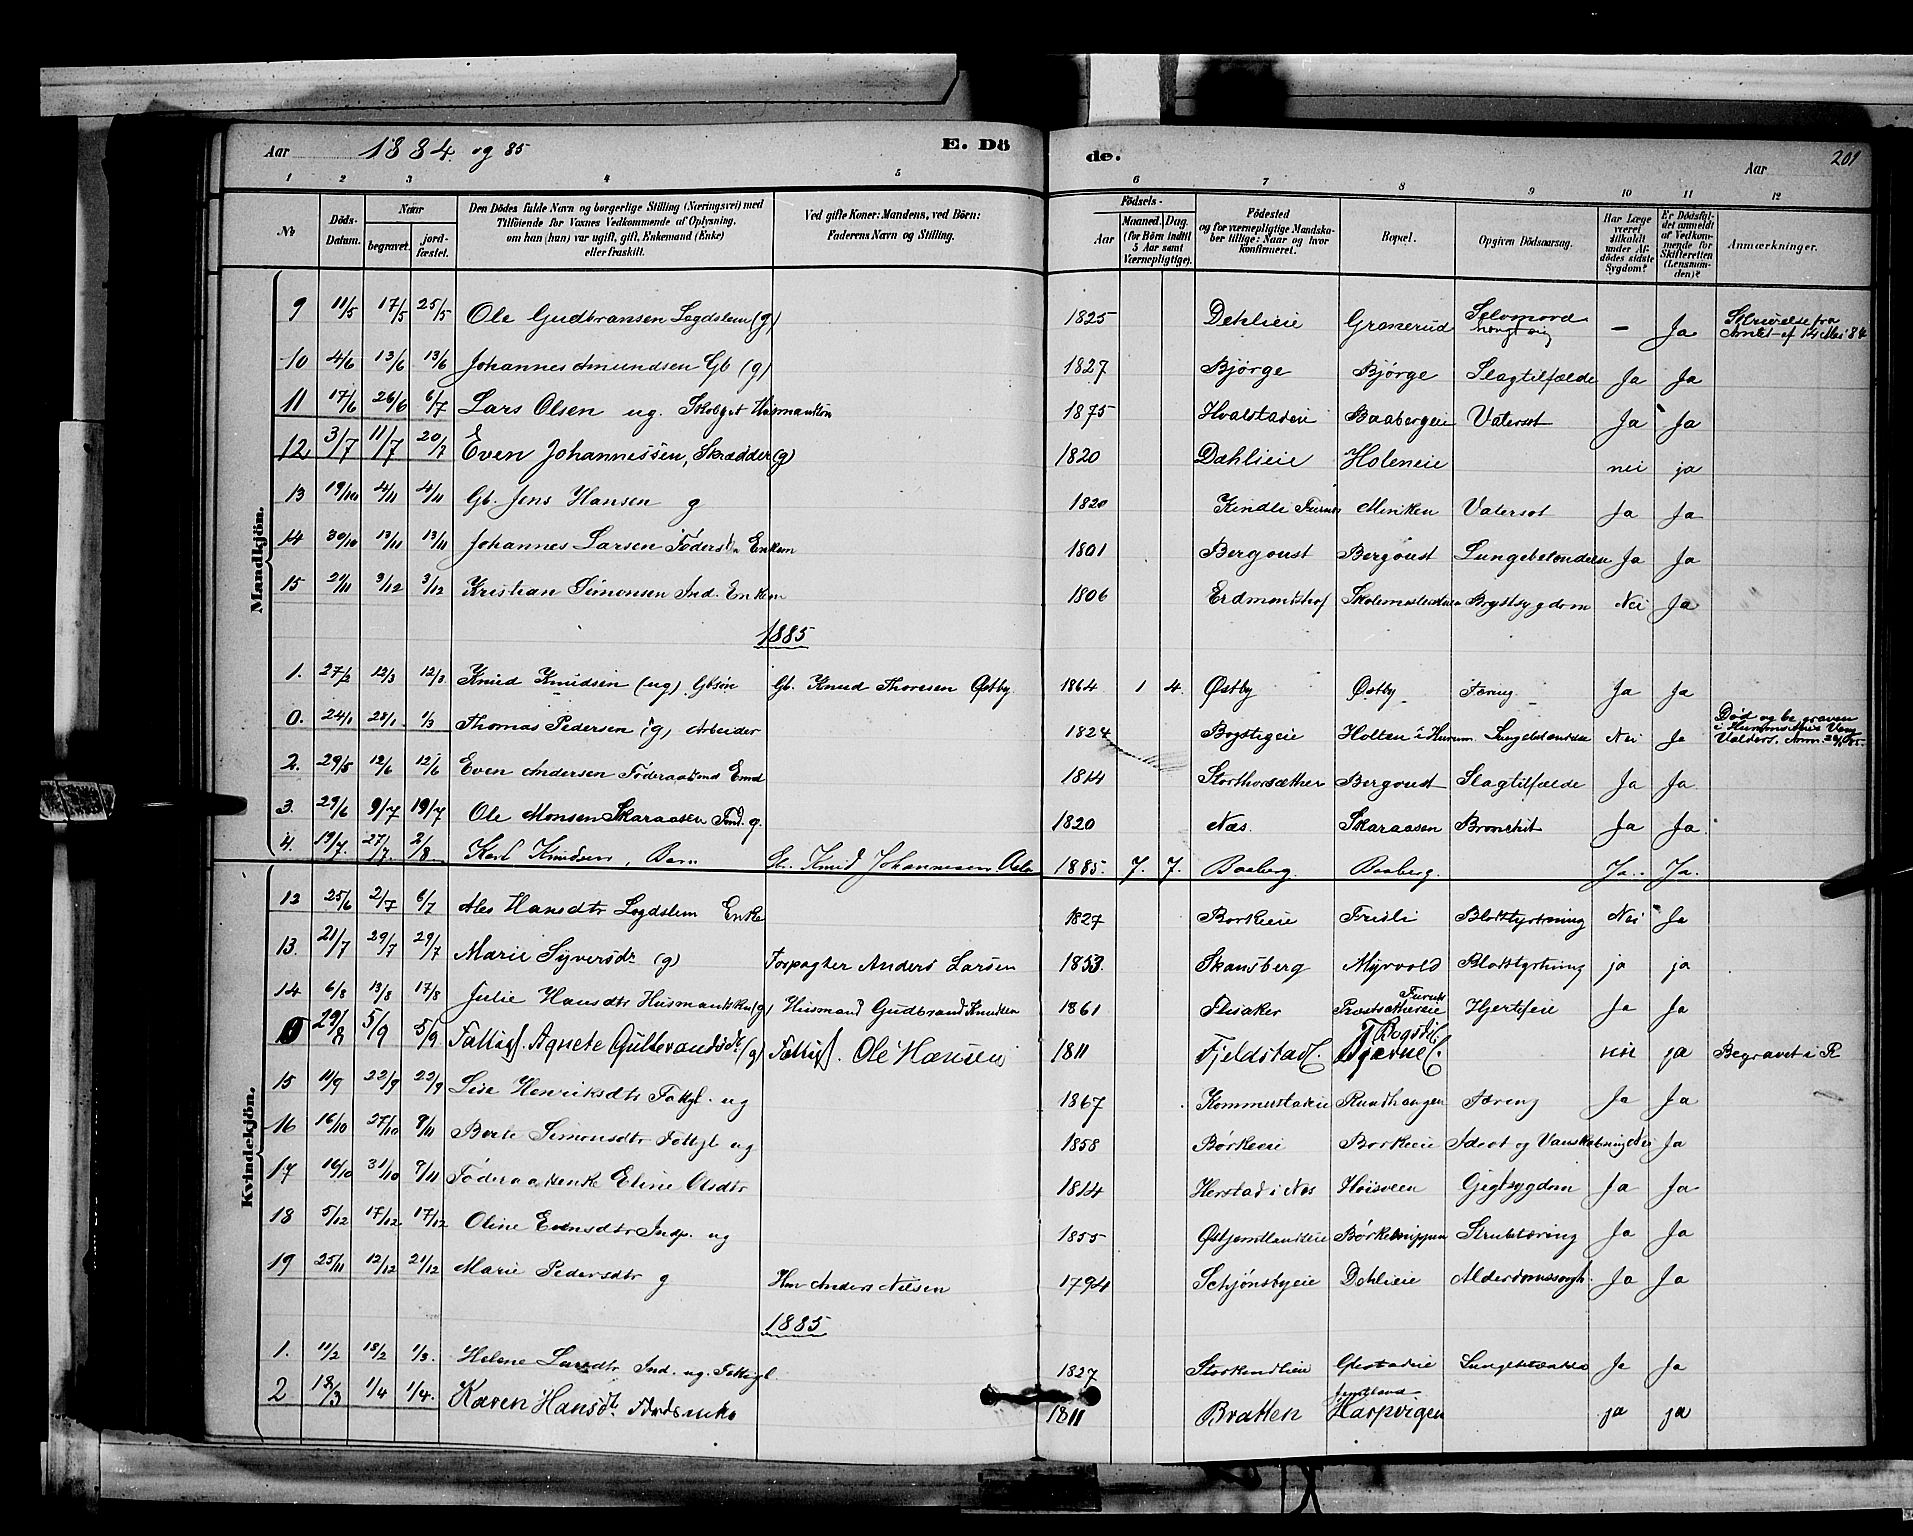 Aar 1884 og 85 E. Dö de. Aar 201
1 2 3 4 5 6 7 8 9 10 11 12
No
Döds-Datum.
Naar
begravet.
jord-fæstet.
Den Dödes fulde Navn og borgerlige Stilling (Næringsvei) med Tilföiende for Voxnes Vedkommende af Oplysning, om han (hun) var ugift, gift, Enkemand (Enke) eller fraskilt.
Ved gifte Koner: Mandens, ved Börn: Faderens Navn og Stilling.
Födsels-
Aar
Maaned. Dag.
(for Börn indtil 5 Aar samt Værnepligtige).
Födested og for værnepligtige Mandskaber tillige: Naar og hvor konfirmeret.
Bopæl.
Opgiven Dödsaarsag.
Har Læge været tilkaldt under Afdödes sidste Sygdom?
Er Dödsfaldet anmeldt af Vedkommende for Skifteretten (Lensmanden)?
Anmærkninger.
Mandkjön.
9 11/5 17/5 25/5 Ole Gudbransen Løgdslem (g) 1825 Dehlieie Granerud Selvmord hængt sig – Ja Skrivelse fra Amtet af 14 Mai 84
10 4/6 13/6 13/6 Johannes Amundsen Gb (g) 1827 Bjørge Bjørge Slagtilfælde Ja Ja
11 17/6 26/6 6/7 Lars Olsen ug. 1875 Hvalstadeie Baabergeie Vatersot Ja Ja
12 3/7 11/7 20/7 Even Johannessen, Skrædder (g) 1820 Dæhlieie Holeneie nei ja
13 19/10 4/11 4/11 Gb. Jens Hansen g 1820 Kindli Furnes Minken Vatersot Ja Ja
14 30/10 13/11 13/11 Johannes Larsen Enkem 1801 Bergoust Bergoust Lungebetendelse Ja Ja
15 2/11 3/12 3/12 Kristian Simonsen Ind. Enkem 1806 Brystsygdom Nei Ja
1885
1. 27/2 12/3 12/3 Knud Knudsen (ug) Gbsøn Gb. Knud Thoresen Østby 1864 1 4. Østby Østby Tæring Ja Ja
0. 24/1 28/1 1/3 Thomas Pedersen (g) Arbeider 1824 Holten i Hurum Nei Ja Død og begraven i
2. 29/5 12/6 12/6 Even Andersen 1814 Storthorsæther Bergoust Slagtilfælde Ja Ja.
3. 29/6 9/7 19/7 Ole Monsen Skaraasen Ind. g. 1820 Næs. Skaraasen Bronchit Ja Ja.
4. 19/7. 27/7. 2/8 Karl Knudsen, Barn Gb. Knud Johannesen 1885. 7. 7. Baaberg. Baaberg. Ja. Ja.
Kvindekjön.
12 25/6 2/7 6/7 Hansdtr Løgdslem Enke 1827 Borkeeie Fridli Blodstyrtning Nei Ja
13. 21/7 29/7 29/7 Marie Syversdr (g) Forpagter Anders Larsen 1853. Skansberg Myrvold Blodstyrtning ja ja
14 6/8 13/8 17/8 Julie Hansdtr (g) Husmand Gudbrand Knudsen 1861 Flisaker Furnes Hjertefeil Ja Ja
0 29/8 5/9 5/9 Fattigl. Agnete Gulbrandsdr (g) Fattigl. Ole Hansen 1811 Fjeldstad nei ja Begravet i R
15 11/9 22/9 22/9 Lise Henriksdtr Fattigl. ug 1867 Kommerstadeie Rundhaugen Tæring Ja Ja
16 16/10 27/10 9/11 Berte Simonsdtr Fattigl ug 1858 Børkeeie Borkeeie Idiot og Nei Ja
17 16/10 31/10 9/11 Føderaadsenke Eline Olsdtr 1814 Herstad i Næs Høisveen Gigtsygdom Ja Ja
18 5/12 17/12 17/12 Oline Evensdtr Indp. ug 1855 Strubetæring Ja Ja
19 25/11 12/12 21/12 Marie Pedersdtr g Hm Anders Nilsen 1794 Schjønsbyeie Dehlieie Ja Ja
1885
1. 11/2 18/2 1/3. Helene Larsdtr Ind. ug. Fattigl 1827 Ja Ja
2 18/3 1/4 1/4. Karen Hansdr 1811 Bratten Jemtland Harpvigen ja ja